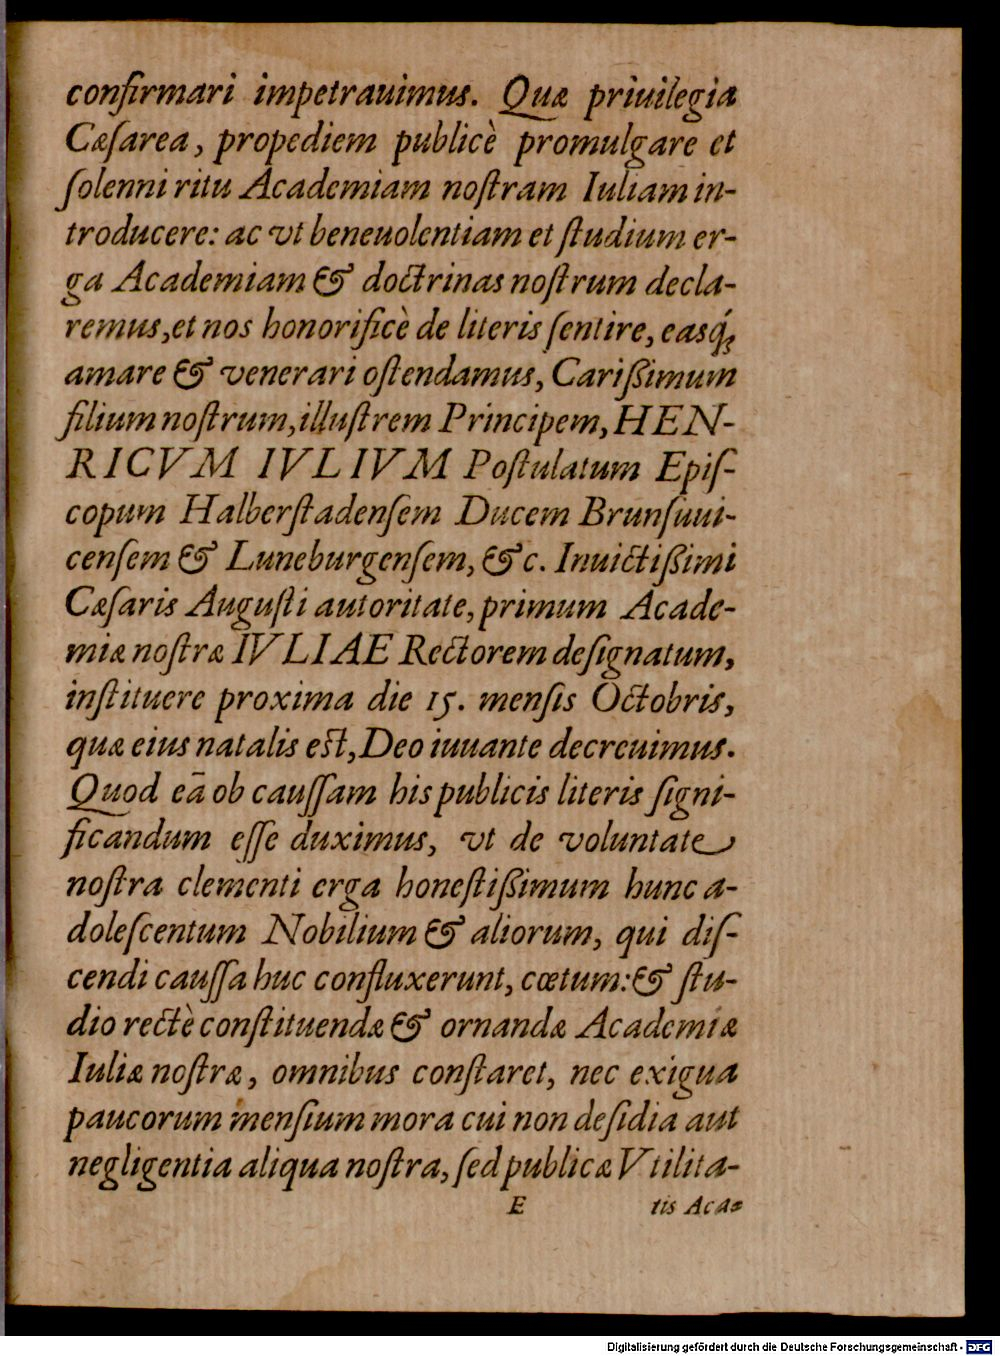 confirmari impetrauimus. Quæ priuilegia
Cæſarea, propediem publicè promulgare et
ſolenni ritu Academiam noſtram Iuliam in-
troducere: ac vt beneuolentiam et ſtudium er-
ga Academiam & doctrinas noſtrum decla-
remus, et nos honorificè de literis ſentire, easq́ꝫ
amare & venerari oſtendamus, Carißimum
filium noſtrum, illuſtrem Principem, HEN-
RICVM IVLIVM Poſtulatum Epiſ-
copum Halberſtadenſem Ducem Brunſuui-
cenſem & Luneburgenſem, &c. Inuictißimi
Cæſaris Auguſti autoritate, primum Acade-
miæ noſtræ IVLIAE Rectorem deſignatum,
inſtituere proxima die 15. menſis Octobris,
quæ eius natalis est, Deo iuuante decreuimus.
Quod eā ob cauſſam his publicis literis ſigni-
ficandum eſſe duximus, vt de voluntate
noſtra clementi erga honeſtißimum hunc a-
doleſcentum Nobilium & aliorum, qui diſ-
cendi cauſſa huc confluxerunt, cœtum: & ſtu-
dio rectè conſtituendæ & ornandæ Academiæ
Iuliæ noſtræ, omnibus conſtaret, nec exigua
paucorum menſium mora cui non deſidia aut
negligentia aliqua noſtra, ſed publicæ Vtilita-
E tis Aca-
Digitalisierung gefördert durch die Deutsche Forschungsgemeinschaft - DFG